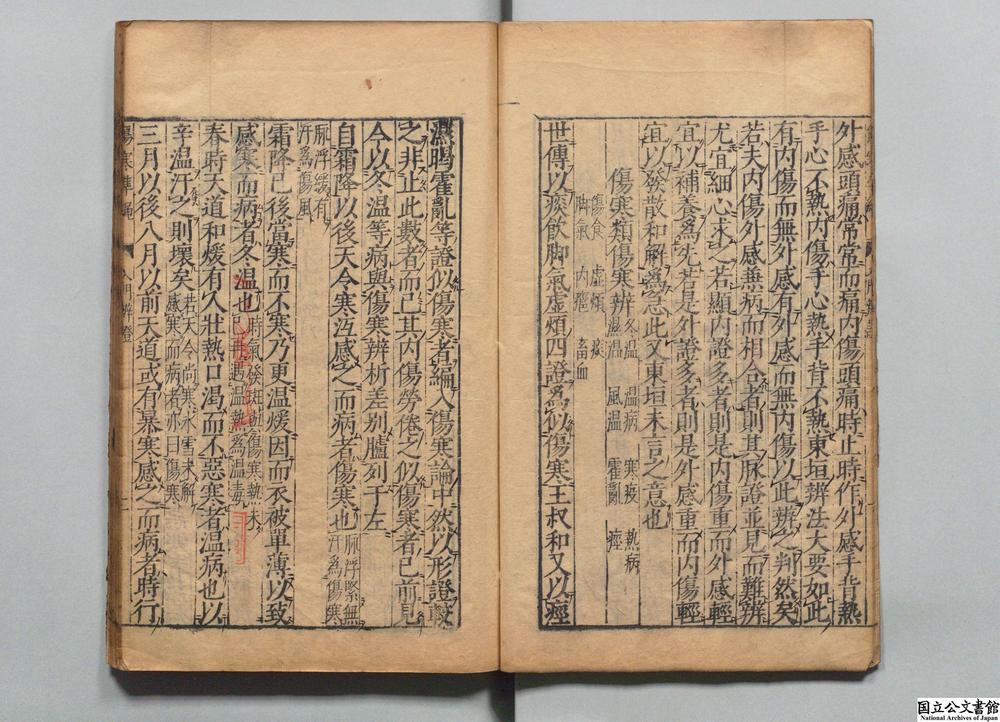 外感頭痛常常而痛内傷頭痛時止時作外感手背熱
手心不熱内傷手心熱手背不熱東垣辨法大要如此
有内傷而無外感有外感而無内傷以此辨之判然矣
若夫内傷外感兼病而相合者則其脉證並見而難辨
尤宜細心求之若顯内證多者則是内傷重而外感輕
宜以補養為先若是外證多者則是外感重而内傷輕
宜以發散和解為急此又東垣未言之意也
傷寒類傷寒辨 冬温 温病 寒疫 熱病
濕温 風温 霍亂 痙
傷食 虚煩 痰
脚氣 内癰 畜血
世傳以痰飲脚氣虚煩四證為似傷寒王叔和又以痙
濕暍霍亂等證似傷寒者編入傷寒論中然以形證較
之非止此數者而已其内傷勞倦之似傷寒者已前見
今以冬温等病與傷寒辨析差別臚列于左
自霜降以後天令寒沍感之而病者傷寒也 脉浮緊無
汗為傷寒
脉浮緩有
汗為傷風
霜降已後當寒而不寒乃更温煖因而衣被單薄以致
感寒而病者冬温也 時氣發斑
傷寒熱未
已再遇温熱為温毒
春時天道和煖有人壯熱口渇而不惡寒者温病也以
辛温汗之則壞矣 若天令尚寒氷雪未解
感寒而病者亦曰傷寒
三月以後八月以前天道或有暴寒感之而病者時行
国立公文書館
National Archives of Japan